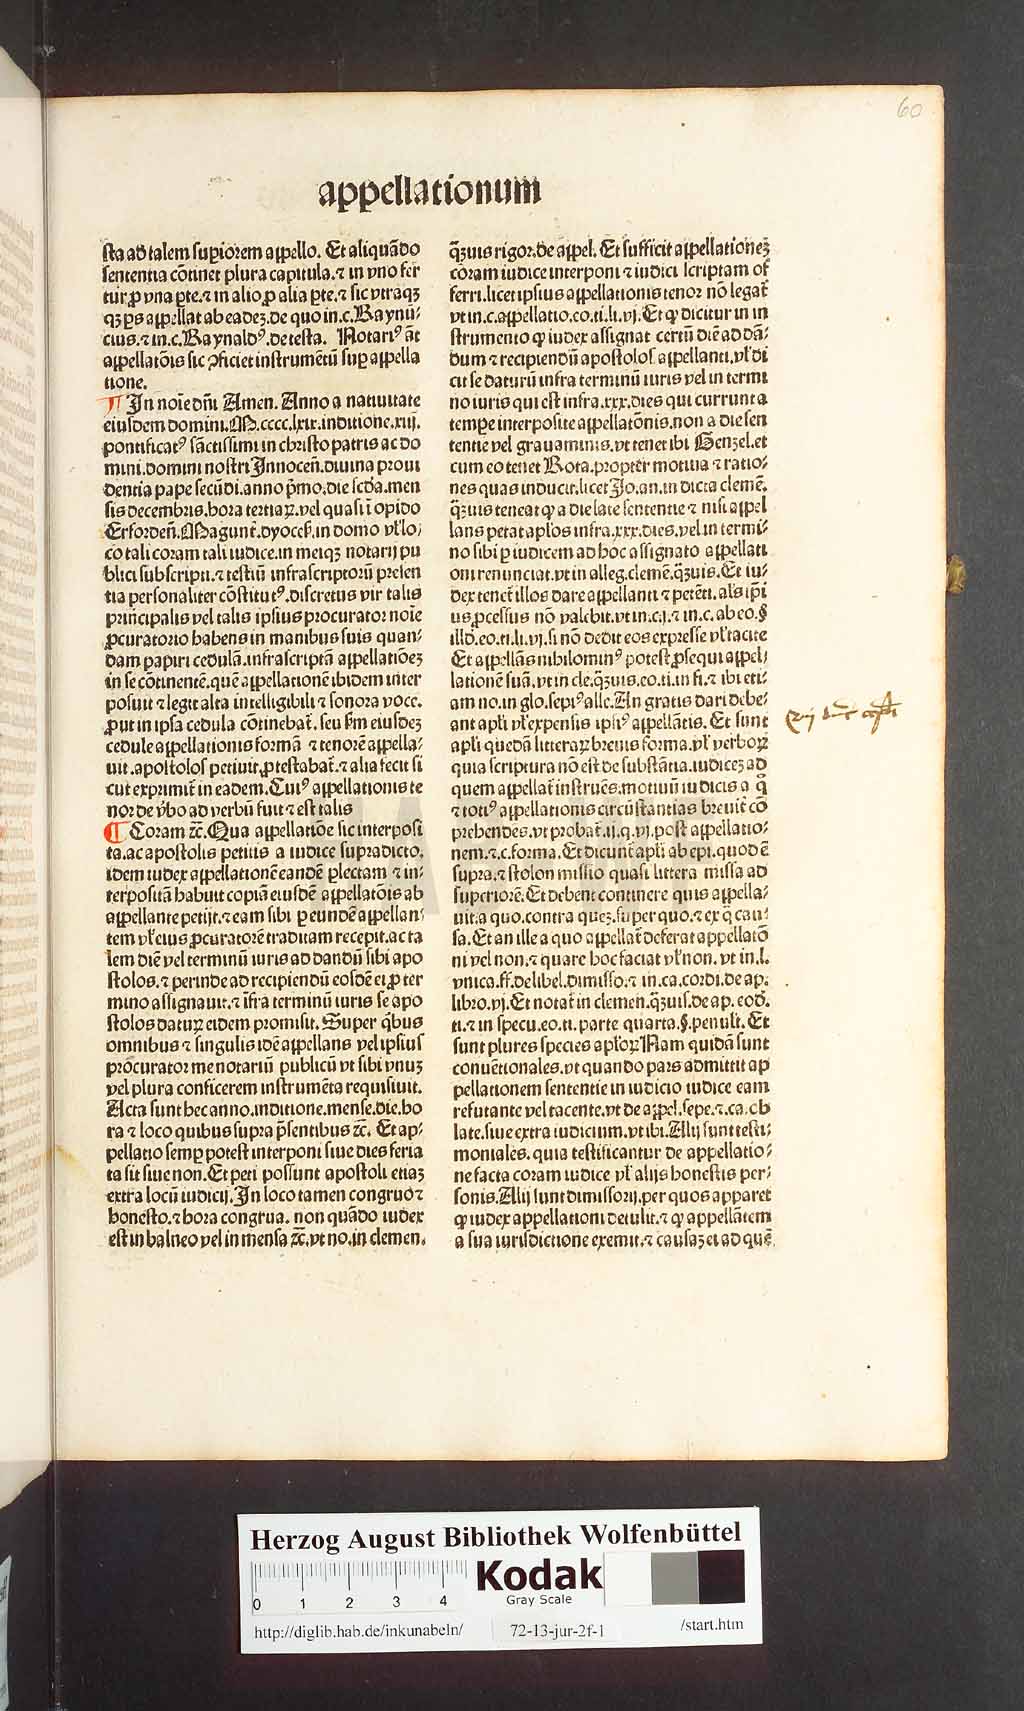 60
appellationum
sta ad talem supiorem appello. Et aliquãdo
sententia cõtinet plura capitula. ⁊ in vno fer
tur ꝓ vna ꝑte. ⁊ in alio ꝓ alia ꝑte. ⁊ sic vtraqꝫ
qꝫ ps appellat ab eadeꝫ. de quo in. c. Raynu-
cius. ⁊ in. c. Raynaldꝰ. de testa. Notariꝰ ãt
appellatõis sic ꝯficiet instrumẽtũ suꝑ appella
tione.
In noĩe dñi Amen. Anno a natiuitate
eiusdem domini. M. cccc. lxix. inditione. xiij.
pontificatꝰ sãctissimi in christo patris ac do
mini. domini nostri Innocẽn. diuina proui
dentia pape secũdi. anno p̃mo. die scd̃a. men
sis decembris. hora tertiaꝝ. vel quasi ĩ opido
Erforden̄. Magunt̃. dyoceſ. in domo vƚ lo-
co tali coram tali iudice. in meiqꝫ notarij pu
blici subscripti. ⁊ testiũ infrascriptorũ presen
tia personaliter cõstitutꝰ. discretus vir talis
principalis vel talis ipsius procurator noĩe
ꝓcuratorio habens in manibus suis quan-
dam papiri cedulã. infrascriptã appellatiõeꝫ
in se cõtinentẽ. quẽ appellationẽ ibidem inter
posuit ⁊ legit alta intelligibili ⁊ sonora voce.
ꝓut in ipsa cedula cõtinebat̃. seu ẜm eiusdeꝫ
cedule appellationis formã ⁊ tenorẽ appella-
uit. apostolos petiuit. ꝓtestabat̃. ⁊ alia fecit si
cut exprimit̃ in eadem. Cuiꝰ appellationis te
nor de v̓bo ad verbũ fuit ⁊ est talis
Coram ⁊c̃. Qua appellatiõe sic interposi
ta. ac apostolis petitis a iudice supradicto.
idem iudex appellationẽ eandẽ ꝑlectam ⁊ in-
terpositã habuit copiã eiusdẽ appellatõis ab
appellante petijt. ⁊ eam sibi ꝑ eundẽ appellan-
tem vƚ eius ꝓcuratorẽ traditam recepit. ac ta
lem diẽ vel terminũ iuris ad dandũ sibi apo
stolos. ⁊ perinde ad recipiendũ eosdẽ ei ꝓ ter
mino assignauit. ⁊ ĩfra terminũ iuris se apo
stolos daturꝝ eidem promisit. Super q̃bus
omnibus ⁊ singulis idẽ appellans vel ipsius
procurator me notariũ publicũ vt sibi vnuꝫ
vel plura conficerem instrumẽta requisiuit.
Acta sunt hec anno. inditione. mense. die. ho
ra ⁊ loco quibus supra p̃sentibus ⁊c̃. Et ap-
pellatio semꝑ potest interponi siue dies feria
ta sit siue non. Et peti possunt apostoli etiaꝫ
extra locũ iudicij. In loco tamen congruo ⁊
honesto. ⁊ hora congrua. non quãdo iudex
est in balneo vel in mensa ⁊c̃. vt no. in clemen.
q̃ꝫuis rigor. de appel. Et sufficit appellationeꝫ
coram iudice interponi ⁊ iudici scriptam of
ferri. licet ipsius appellationis tenor nõ legat̃
vt in. c. appellatio. eo. ti. li. vj. Et ꝙ dicitur in in
strumento ꝙ iudex assignat certũ diẽ ad dã-
dum ⁊ recipiendũ apostolos appellanti. vƚ di
cit se daturũ infra terminũ iuris vel in termi
no iuris qui est infra. xxx. dies qui currunt a
tempe interposite appellatõnis. non a die sen
tentie vel grauaminis. vt tenet ibi Genzel. et
cum eo tenet Rota. propter motiua ⁊ ratio-
nes quas inducit. licet Jo. an. in dicta clemẽ.
q̃ꝫuis teneat ꝙ a die late sententie ⁊ nisi appel
lans petat apƚos infra. xxx. dies. vel in termi-
no sibi ꝑ iudicem ad hoc assignato appellati
oni renunciat. vt in alleg. clemẽ. q̃ꝫuis. Et iu-
dex tenet̃ illos dare appellanti ⁊ petẽti. als ip̃i
us ꝓcessus nõ valebit. vt in. c. j. ⁊ in. c. ab eo. §
illd̃. eo. ti. li. vj. si nõ dedit eos expresse vƚ tacite
Et appellãs nihilominꝰ potest ꝓsequi appel-
lationẽ suã. vt in cle. q̃ꝫuis. eo. ti. in fi. ⁊ ibi eti-
am no. in glo. sepiꝰ alle. An gratis dari debe-
ant apƚi vƚ expensis ipsiꝰ appellãtis. Et sunt
apƚi quedã litteraꝝ breuis forma. vƚ verboꝝ
quia scriptura nõ est de substãtia. iudiceꝫ ad
quem appellat̃ instruẽs. motiuũ iudicis a q̃
⁊ totiꝰ appellationis circũstantias breuit̃ cõ
prehendẽs. vt probat̃. ij. q. vj. post appellatio-
nem. ⁊. c. forma. Et dicunt̃ apƚi ab epi. quod ẽ
supra. ⁊ stolon missio quasi littera missa ad
superiorẽ. Et debent continere quis appella-
uit. a quo. contra queꝫ. super quo. ⁊ ex q̃ cau-
sa. Et an ille a quo appellat̃ deferat appellatõ
ni vel non. ⁊ quare hoc faciat vƚ non. vt in. l.
vnica. ff. de libel. dimisso. ⁊ in. ca. cordi. de ap.
libro. vj. Et notat̃ in clemen. q̃ꝫuis. de ap. eod̃.
ti. ⁊ in specu. eo. ti. parte quarta. §. penult. Et
sunt plures species apƚoꝝ Nam quidã sunt
conuẽtionales. vt quando pars admittit ap
pellationem sententie in iudicio iudice eam
refutante vel tacente. vt de appel. sepe. ⁊. ca. ob
late. siue extra iudicium. vt ibi. Alij sunt testi-
moniales. quia testificantur de appellatio-
ne facta coram iudice vƚ alijs honestis per-
sonis. Alij sunt dimissorij. per quos apparet
ꝙ iudex appellationi detulit. ⁊ ꝙ appellãtem
a sua iurisdictione exemit. ⁊ causaꝫ ei ad quẽ
Herzog August Bibliothek Wolfenbüttel
0 1 2 3 4
Kodak
Gray Scale
http://diglib.hab.de/inkunabeln/ 72-13-jur-2f-1 /start.htm